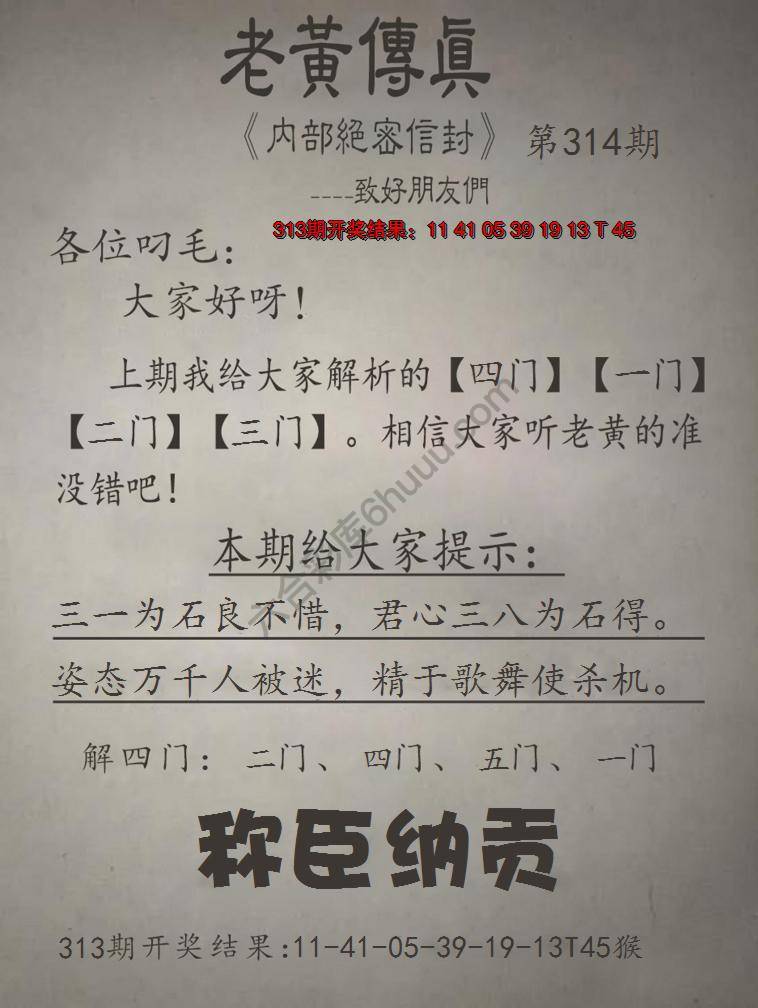 老黃傳眞
《内部絕密信封》 第314期
----致好朋友們
313期开奖结果：11 41 05 39 19 13 T 45
各位叼毛：
大家好呀！
上期我给大家解析的【四门】【一门】
【二门】【三门】。相信大家听老黄的准
没错吧！
本期给大家提示：
三一为石良不惜，君心三八为石得。
姿态万千人被迷，精于歌舞使杀机。
解四门：二门、四门、五门、一门
称臣纳贡
313期开奖结果:11-41-05-39-19-13T45猴
六合彩库6huuu.com